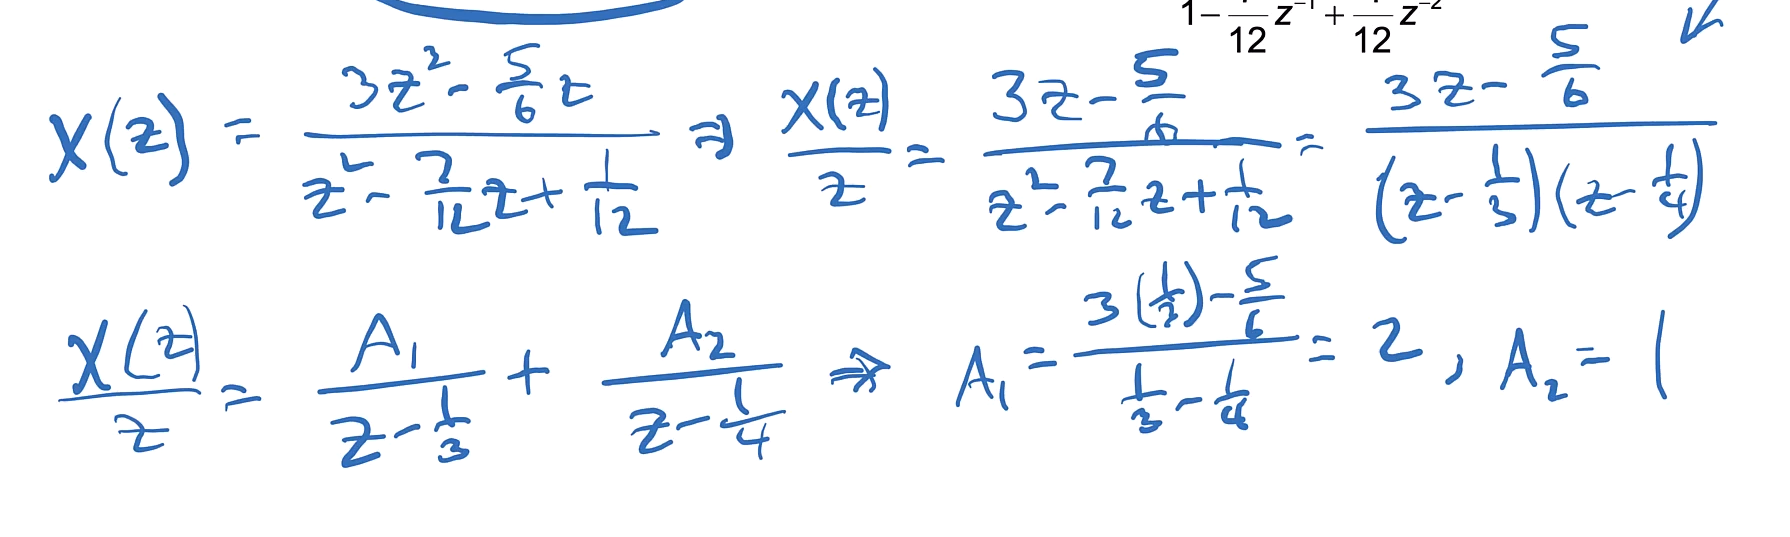 1 − /12 z⁻¹ + /12 z⁻²
X(z) = (3z² - 5/6 z)/(z² - 7/12 z + 1/12) ⇒ X(z)/z = (3z - 5/6)/(z² - 7/12 z + 1/12) = (3z - 5/6)/((z - 1/3)(z - 1/4))
X(z)/z = A₁/(z - 1/3) + A₂/(z - 1/4) ⇒ A₁ = (3(1/3) - 5/6)/(1/3 - 1/4) = 2, A₂ = 1